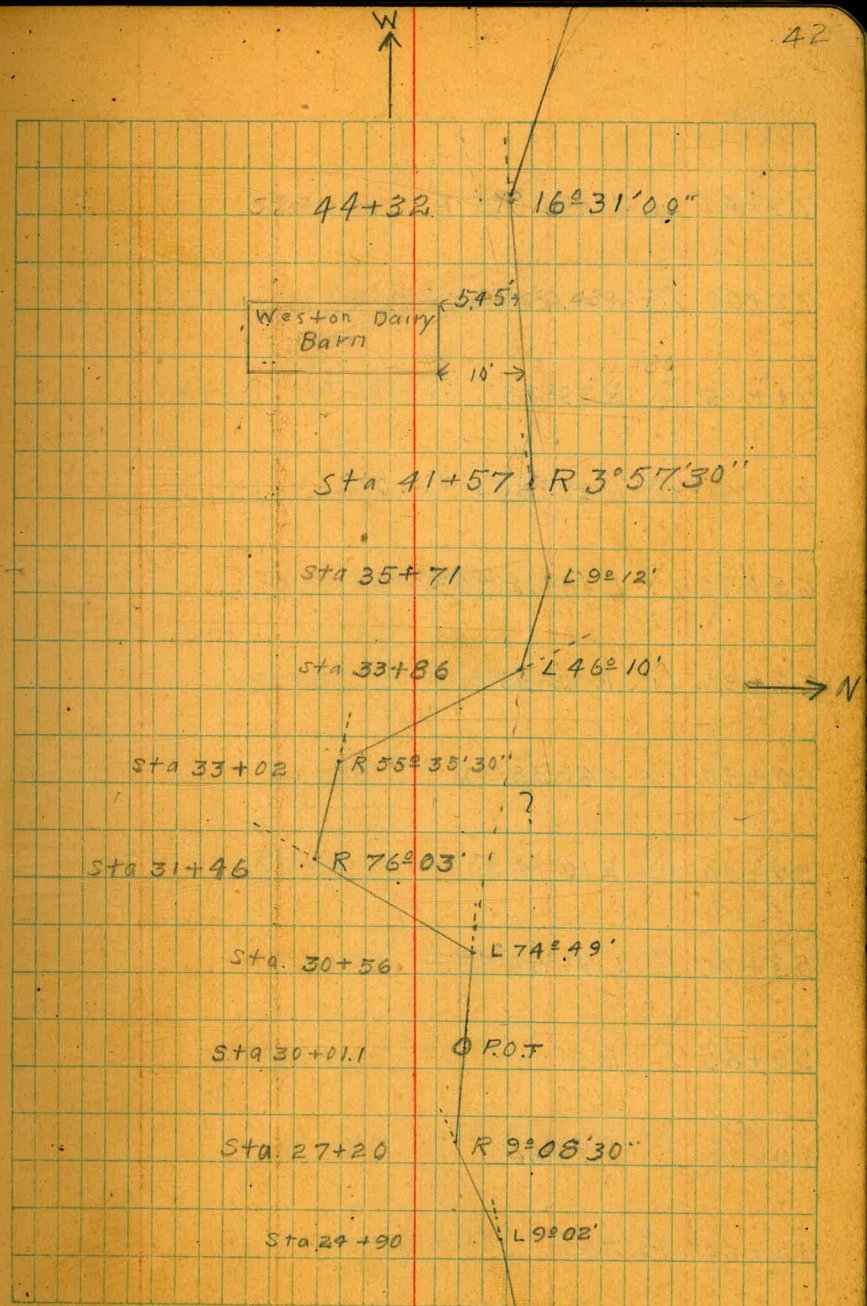 42
W
44+32 16°31'00"
5.45'
Weston Dairy
Barn
10'
Sta 41+57 R 3°57'30"
Sta 35+71 L 9°12'
Sta 33+86 L 46°10'
N
Sta 33+02 R 55°35'30"
?
Sta 31+46 R 76°03'
Sta. 30+56 L 74°49'
Sta 30+01.1 P.O.T
Sta. 27+20 R 9°08'30"
Sta 24+90 L 9°02'